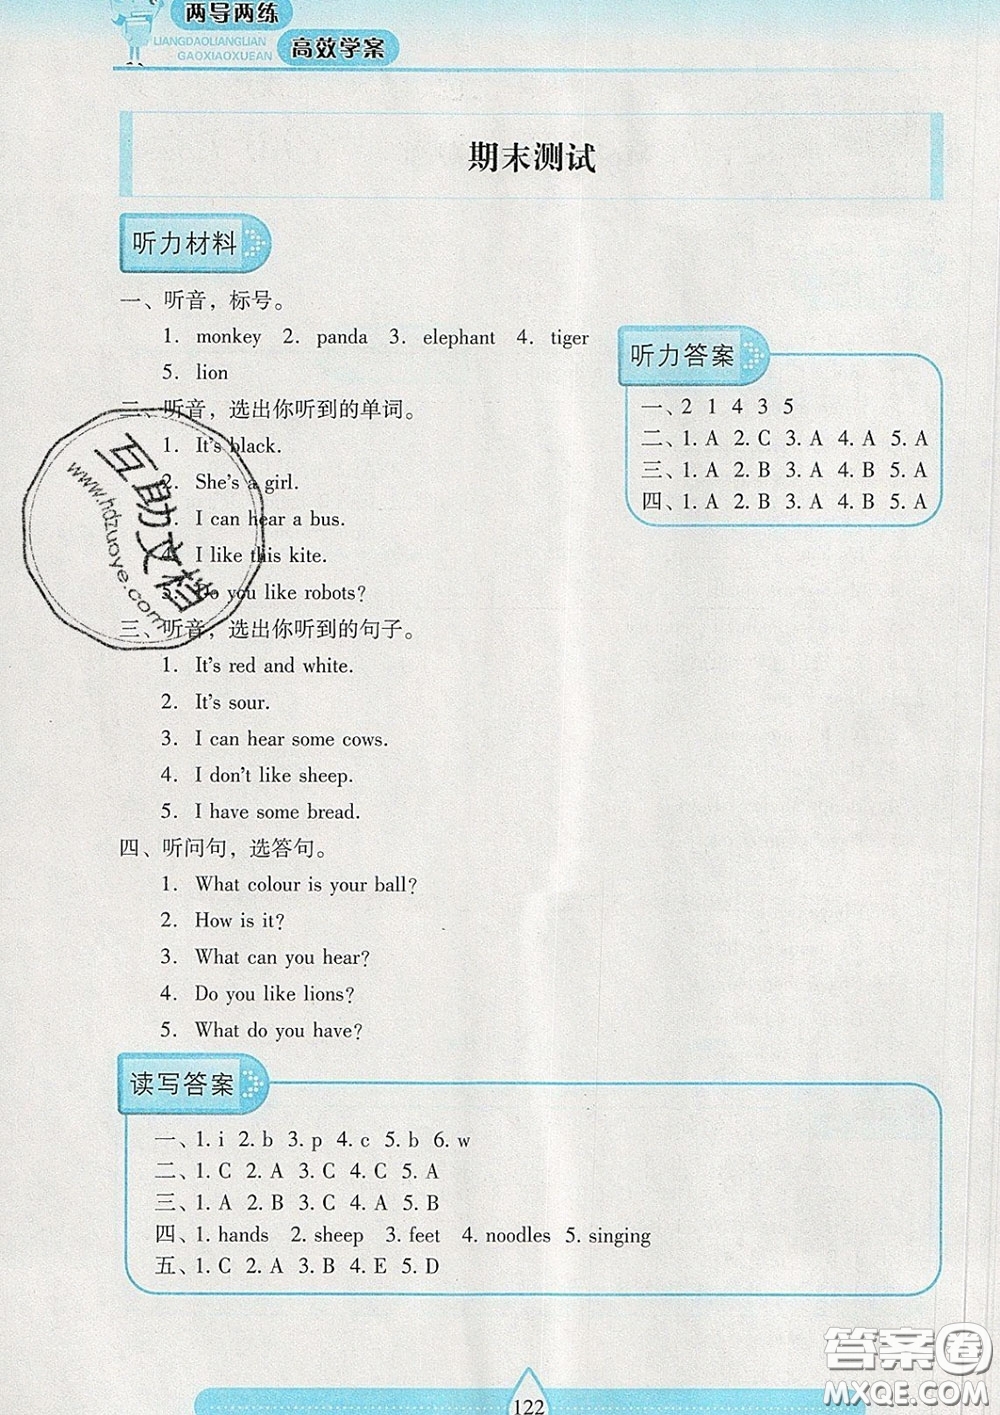 两导两练
LIANGDAOLIANGLIAN
GAOXIAOXUEAN
高效学案
期末测试
听力材料
一、听音，标号。
1. monkey 2. panda 3. elephant 4. tiger
5. lion
二、听音，选出你听到的单词。
1. It's black.
2. She's a girl.
3. I can hear a bus.
4. I like this kite.
5. Do you like robots?
三、听音，选出你听到的句子。
1. It's red and white.
2. It's sour.
3. I can hear some cows.
4. I don't like sheep.
5. I have some bread.
四、听问句，选答句。
1. What colour is your ball?
2. How is it?
3. What can you hear?
4. Do you like lions?
5. What do you have?
听力答案
一、2 1 4 3 5
二、1. A 2. C 3. A 4. A 5. A
三、1. A 2. B 3. A 4. B 5. A
四、1. A 2. B 3. A 4. B 5. A
读写答案
一、1. i 2. b 3. p 4. c 5. b 6. w
二、1. C 2. A 3. C 4. C 5. A
三、1. A 2. B 3. C 4. A 5. B
四、1. hands 2. sheep 3. feet 4. noodles 5. singing
五、1. C 2. A 3. B 4. E 5. D
122
互助文档
www.hdzuoye.com
答案圈
MXQE.COM